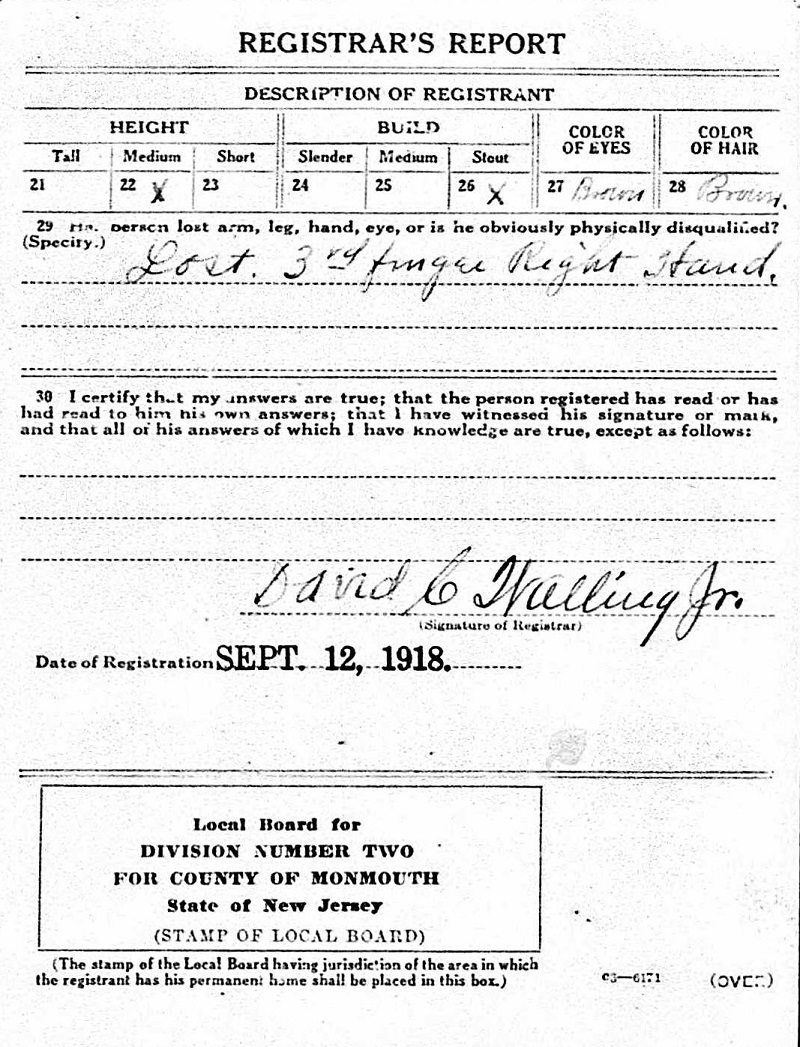 REGISTRAR'S REPORT
DESCRIPTION OF REGISTRANT
HEIGHT BUILD COLOR OF EYES COLOR OF HAIR
Tall Medium Short Slender Medium Stout
21 22 X 23 24 25 26 X 27 Brown 28 Brown.
29 Has person lost arm, leg, hand, eye, or is he obviously physically disqualified?
(Specify.) Lost. 3rd finger Right Hand.
30 I certify that my answers are true; that the person registered has read or has
had read to him his own answers; that I have witnessed his signature or mark,
and that all of his answers of which I have knowledge are true, except as follows:
David C Walling Jr.
(Signature of Registrar)
Date of Registration SEPT. 12, 1918.
Local Board for
DIVISION NUMBER TWO
FOR COUNTY OF MONMOUTH
State of New Jersey
(STAMP OF LOCAL BOARD)
(The stamp of the Local Board having jurisdiction of the area in which
the registrant has his permanent home shall be placed in this box.)
03—6171 (OVER)